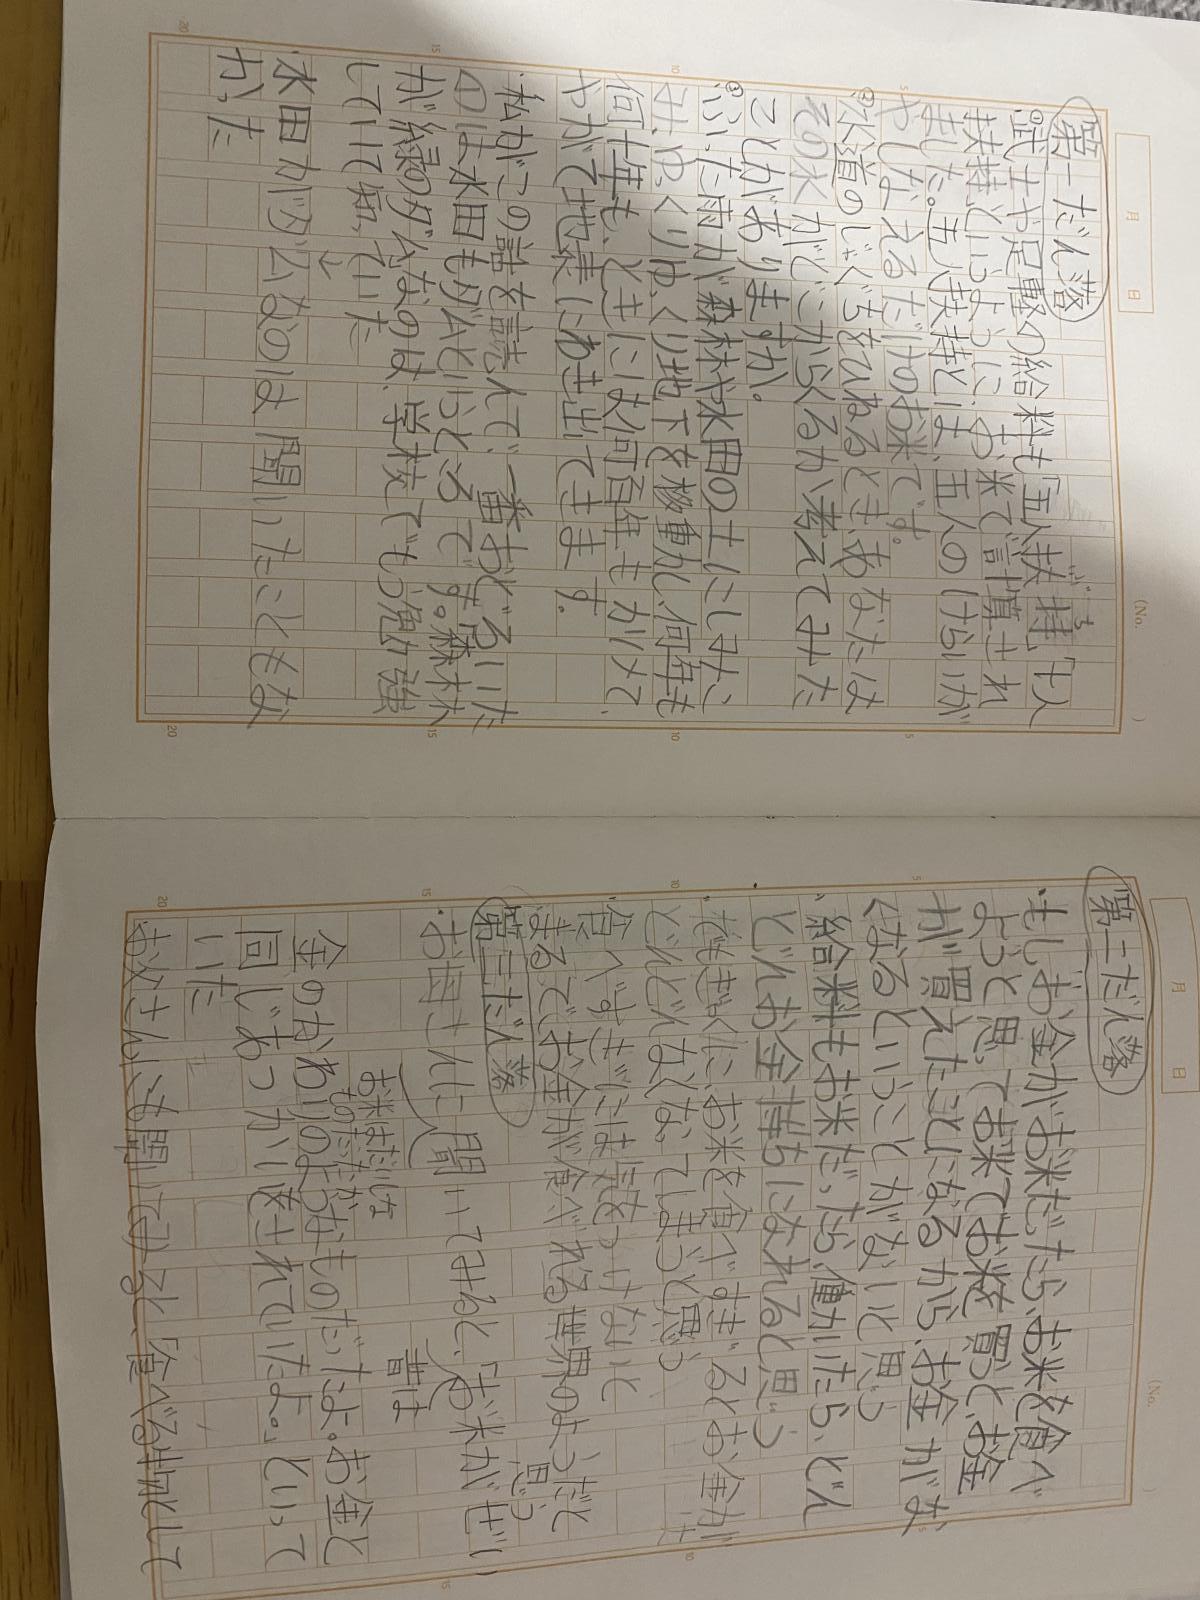 (No. )
月 日
第一だん落
①武士や足軽の給料も「五人扶持」「七人
ぶち
扶持」というように、お米で計算され
ました。五人扶持とは、五人のけらいが
やしなえるだけのお米です。
②水道のじゃぐちをひねるときあなたは
その水がどこからくるか考えてみた
ことがありますか。
③ふった雨が森林や水田の土にしみこ
み、ゆっくりゆっくり地下を移動し、何年も
何十年も、ときには何百年もかけて、
やがて地表にわき出てきます。
・私がこの話を読んで、一番おどろいた
のは水田もダムというところです。森林
が緑のダムなのは、学校でもう勉強
していて知っていた
↓
水田がダムなのは聞いたこともな
かった
(No. )
月 日
第二だん落
・もしお金がお米だったら、お米を食べ
ようと思ってお米でお米を買うと、お金
が買えたことになるから、お金がな
くなるということがないと思う
・給料もお米だったら、働いたら、どん
どんお金持ちになれると思う
・ぎゃくに、お米を食べすぎるとお金が
どんどんなくなってしまうと思う
食べすぎには気をつけないと
まるでお金が食べれる世界のようだと
思う
第三だん落
・お母さんに聞いてみると、「お米がぜい
昔は
お米はだいじな
ものだったんだよ
金のかわりのようなものだったよ。お金と
同じあつかいをされていたよ。」といって
いた
・お父さんにも聞いてみると、「食べる物として